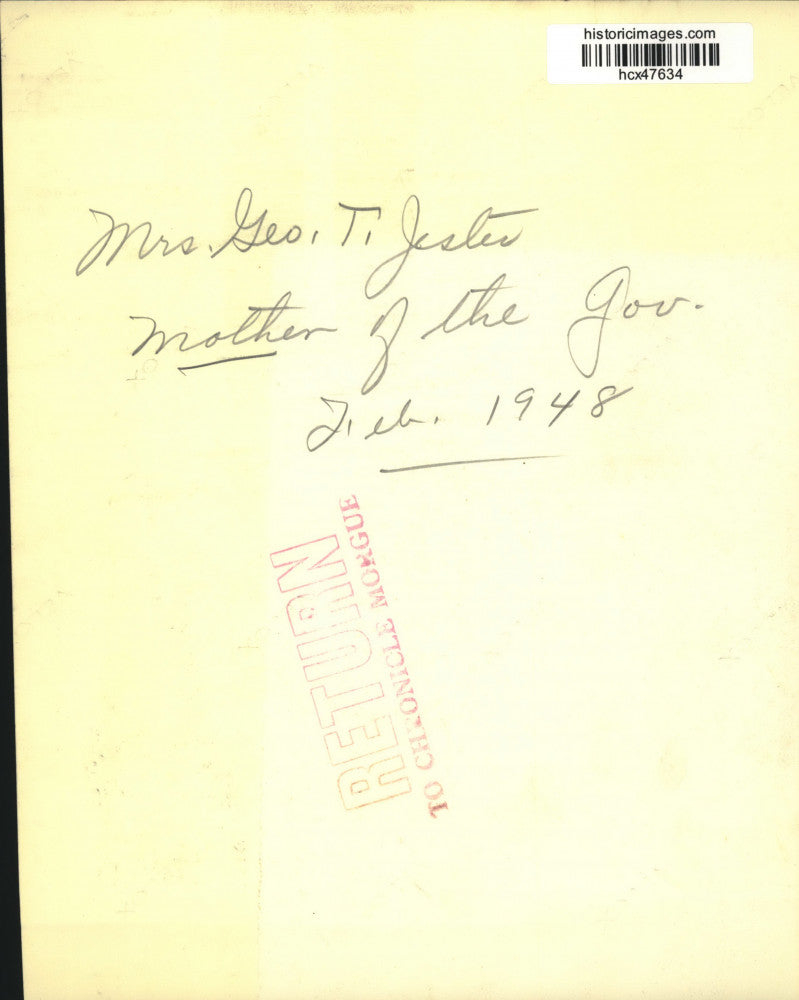 historicimages.com
hcx47634
Mrs. Geo. T. Jester
Mother of the Gov.
Feb. 1948
RETURN
TO CHRONICLE MORGUE